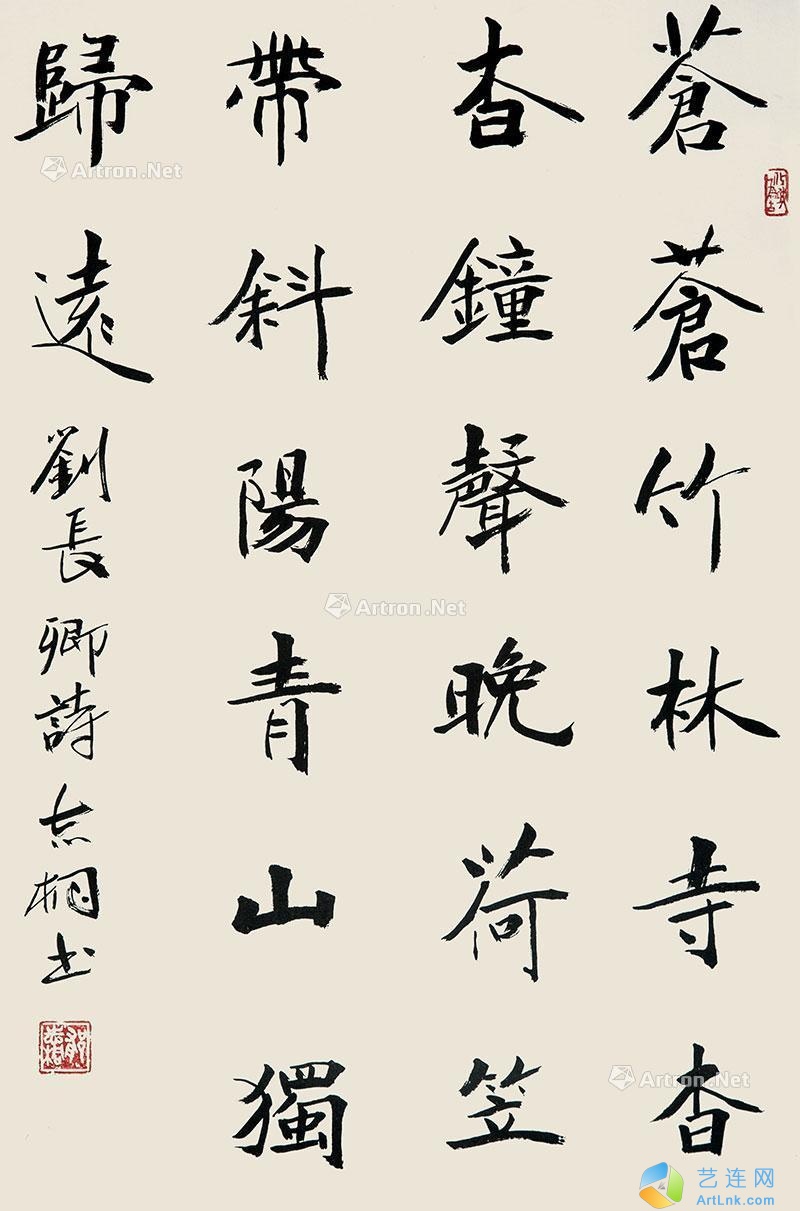 蒼蒼竹林寺杳
杳鐘聲晚荷笠
帶斜陽青山獨
歸遠 劉長卿詩 志桐书
Artron.Net
Artron.Net
Artron.Net
艺连网
ArtLnk.com